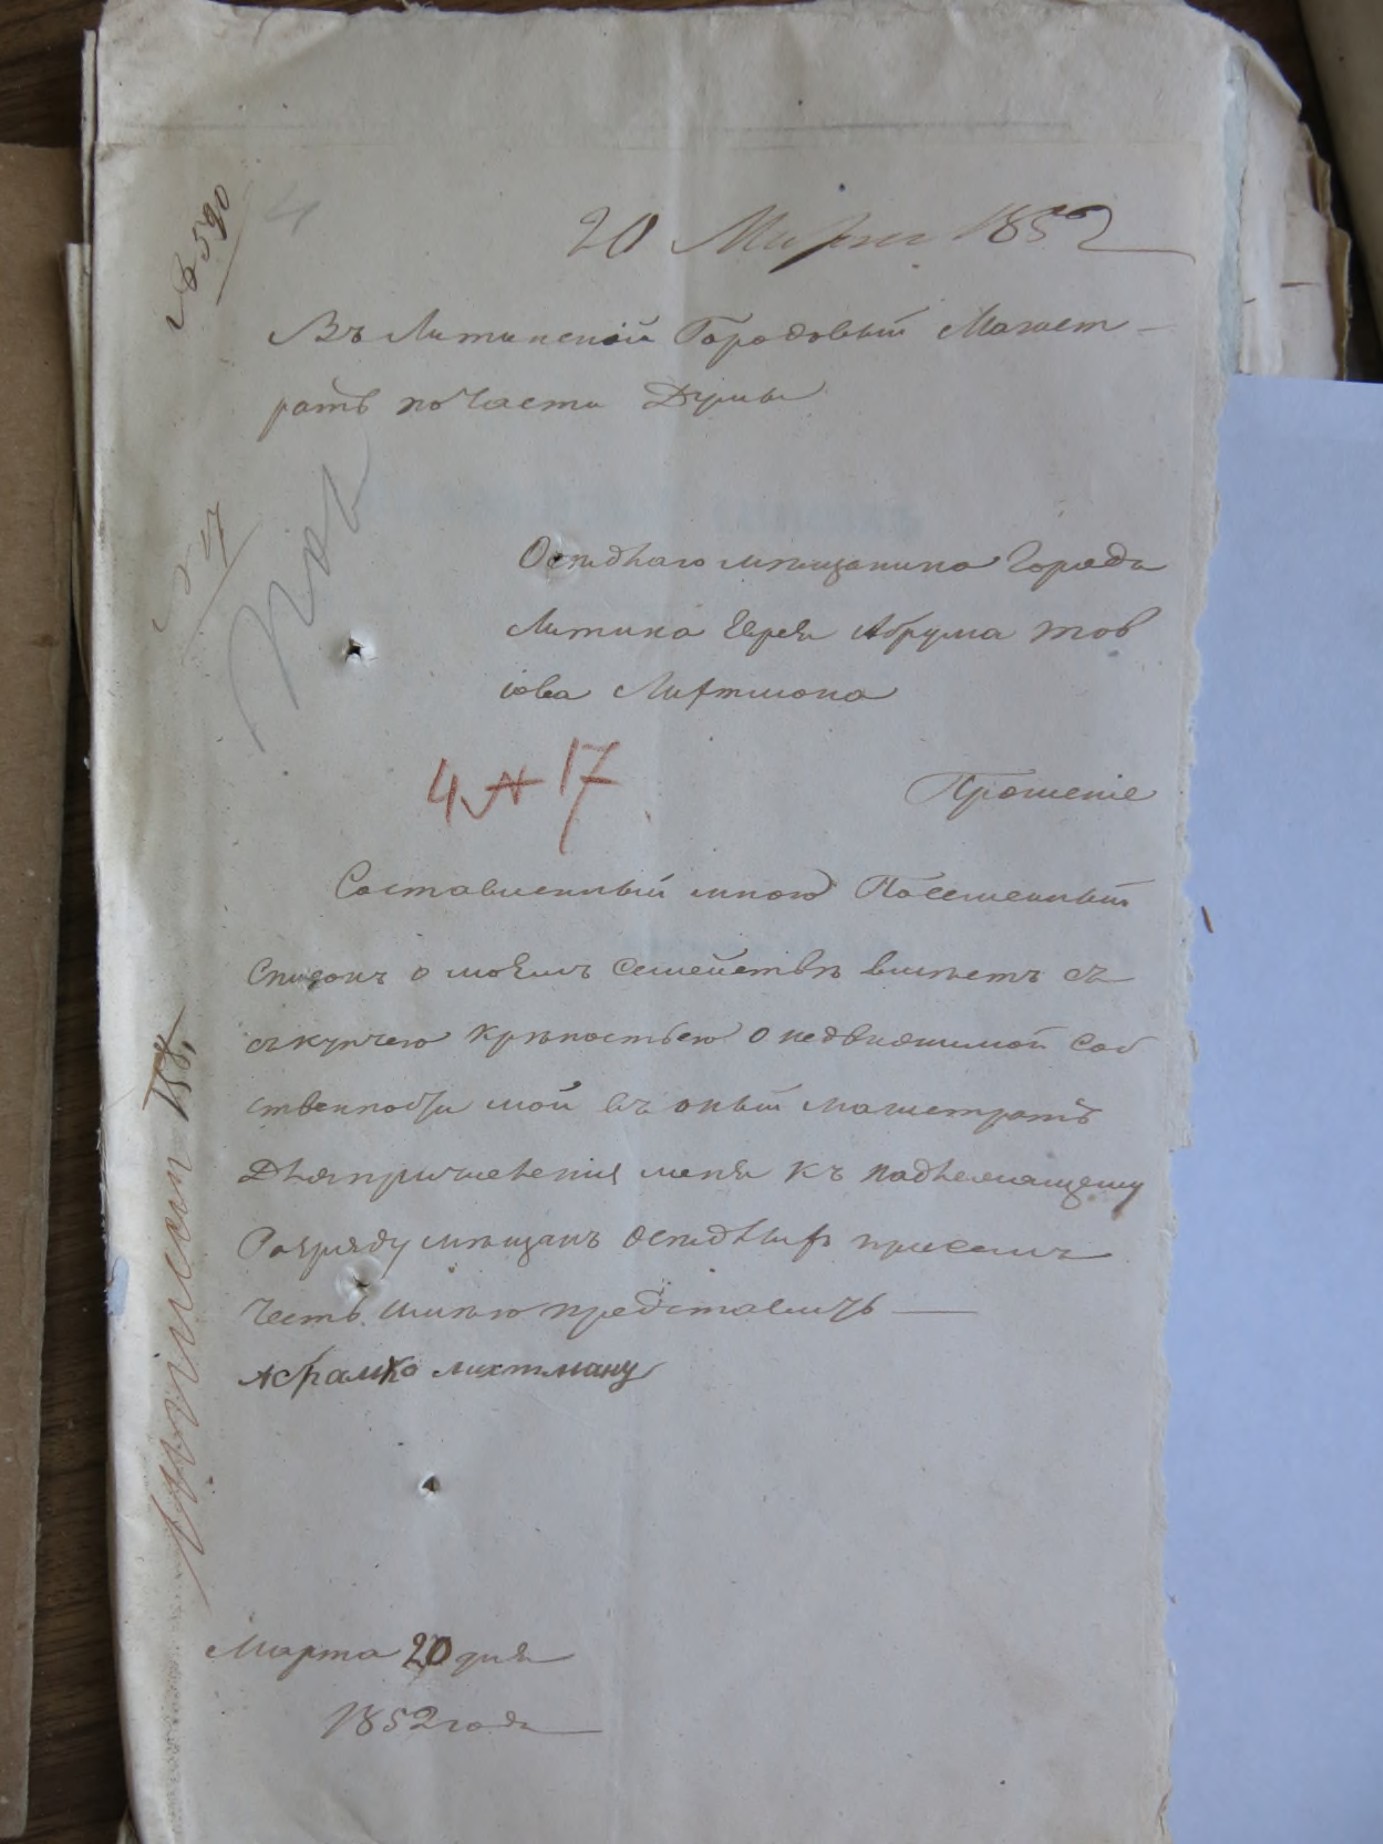 № 590
4
20 Марта 1852
Въ Литинской Городовый Магист-
ратъ по части Думы
Осѣдлаго мѣщанина Города
Литина Еврея Абрума Тов
іова Лихтмона
4 № 17
Прошеніе
Составленный мною Посемейный
Списокъ о моемъ Семействѣ вмѣстѣ съ
съ купчею крѣпостью о недвижимой Соб
ственности мой въ оный магистратъ
Для причисленія меня къ подлежащему
Розряду мѣщанъ осѣдлыхъ присемъ
честь имѣю представить —
Абрамко лихтману
Марта 20 дня
1852 года